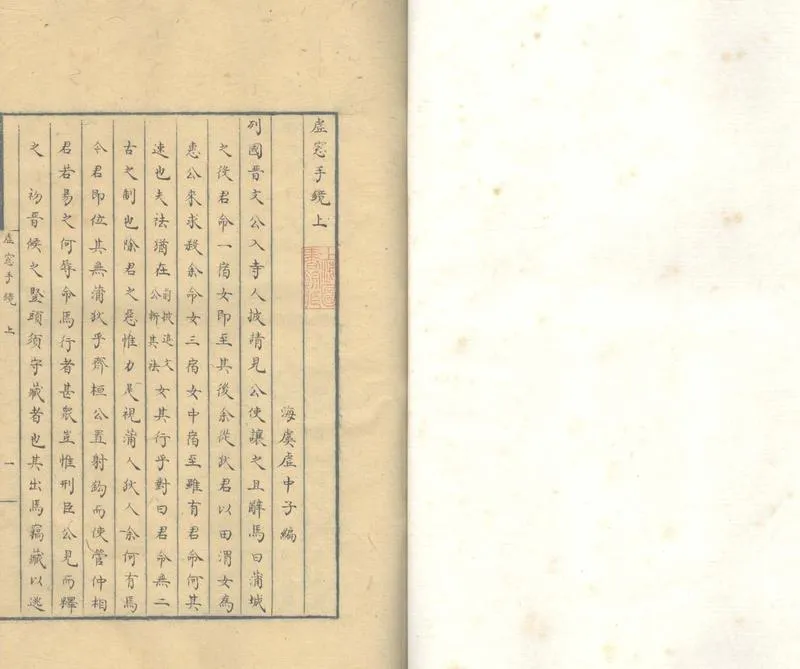 虛窻手鏡上
海虞虛中子編
列國晋文公入寺人披請見公使讓之且辭焉曰蒲城
之後君命一宿女即至其後余從狄君以田渭女為
惠公來求殺余命女三宿女中宿至雖有君命何其
速也夫祛猶在 前披追文公斬其祛 女其行乎對曰君命無二
古之制也除君之惡惟力是視蒲人狄人余何有焉
今君即位其無蒲狄乎齊桓公置射鈎而使管仲相
君若易之何辱命焉行者甚衆豈惟刑臣公見而釋
之 初晋候之豎頭須守藏者也其出焉竊藏以逃
虛窻手鏡 上
一